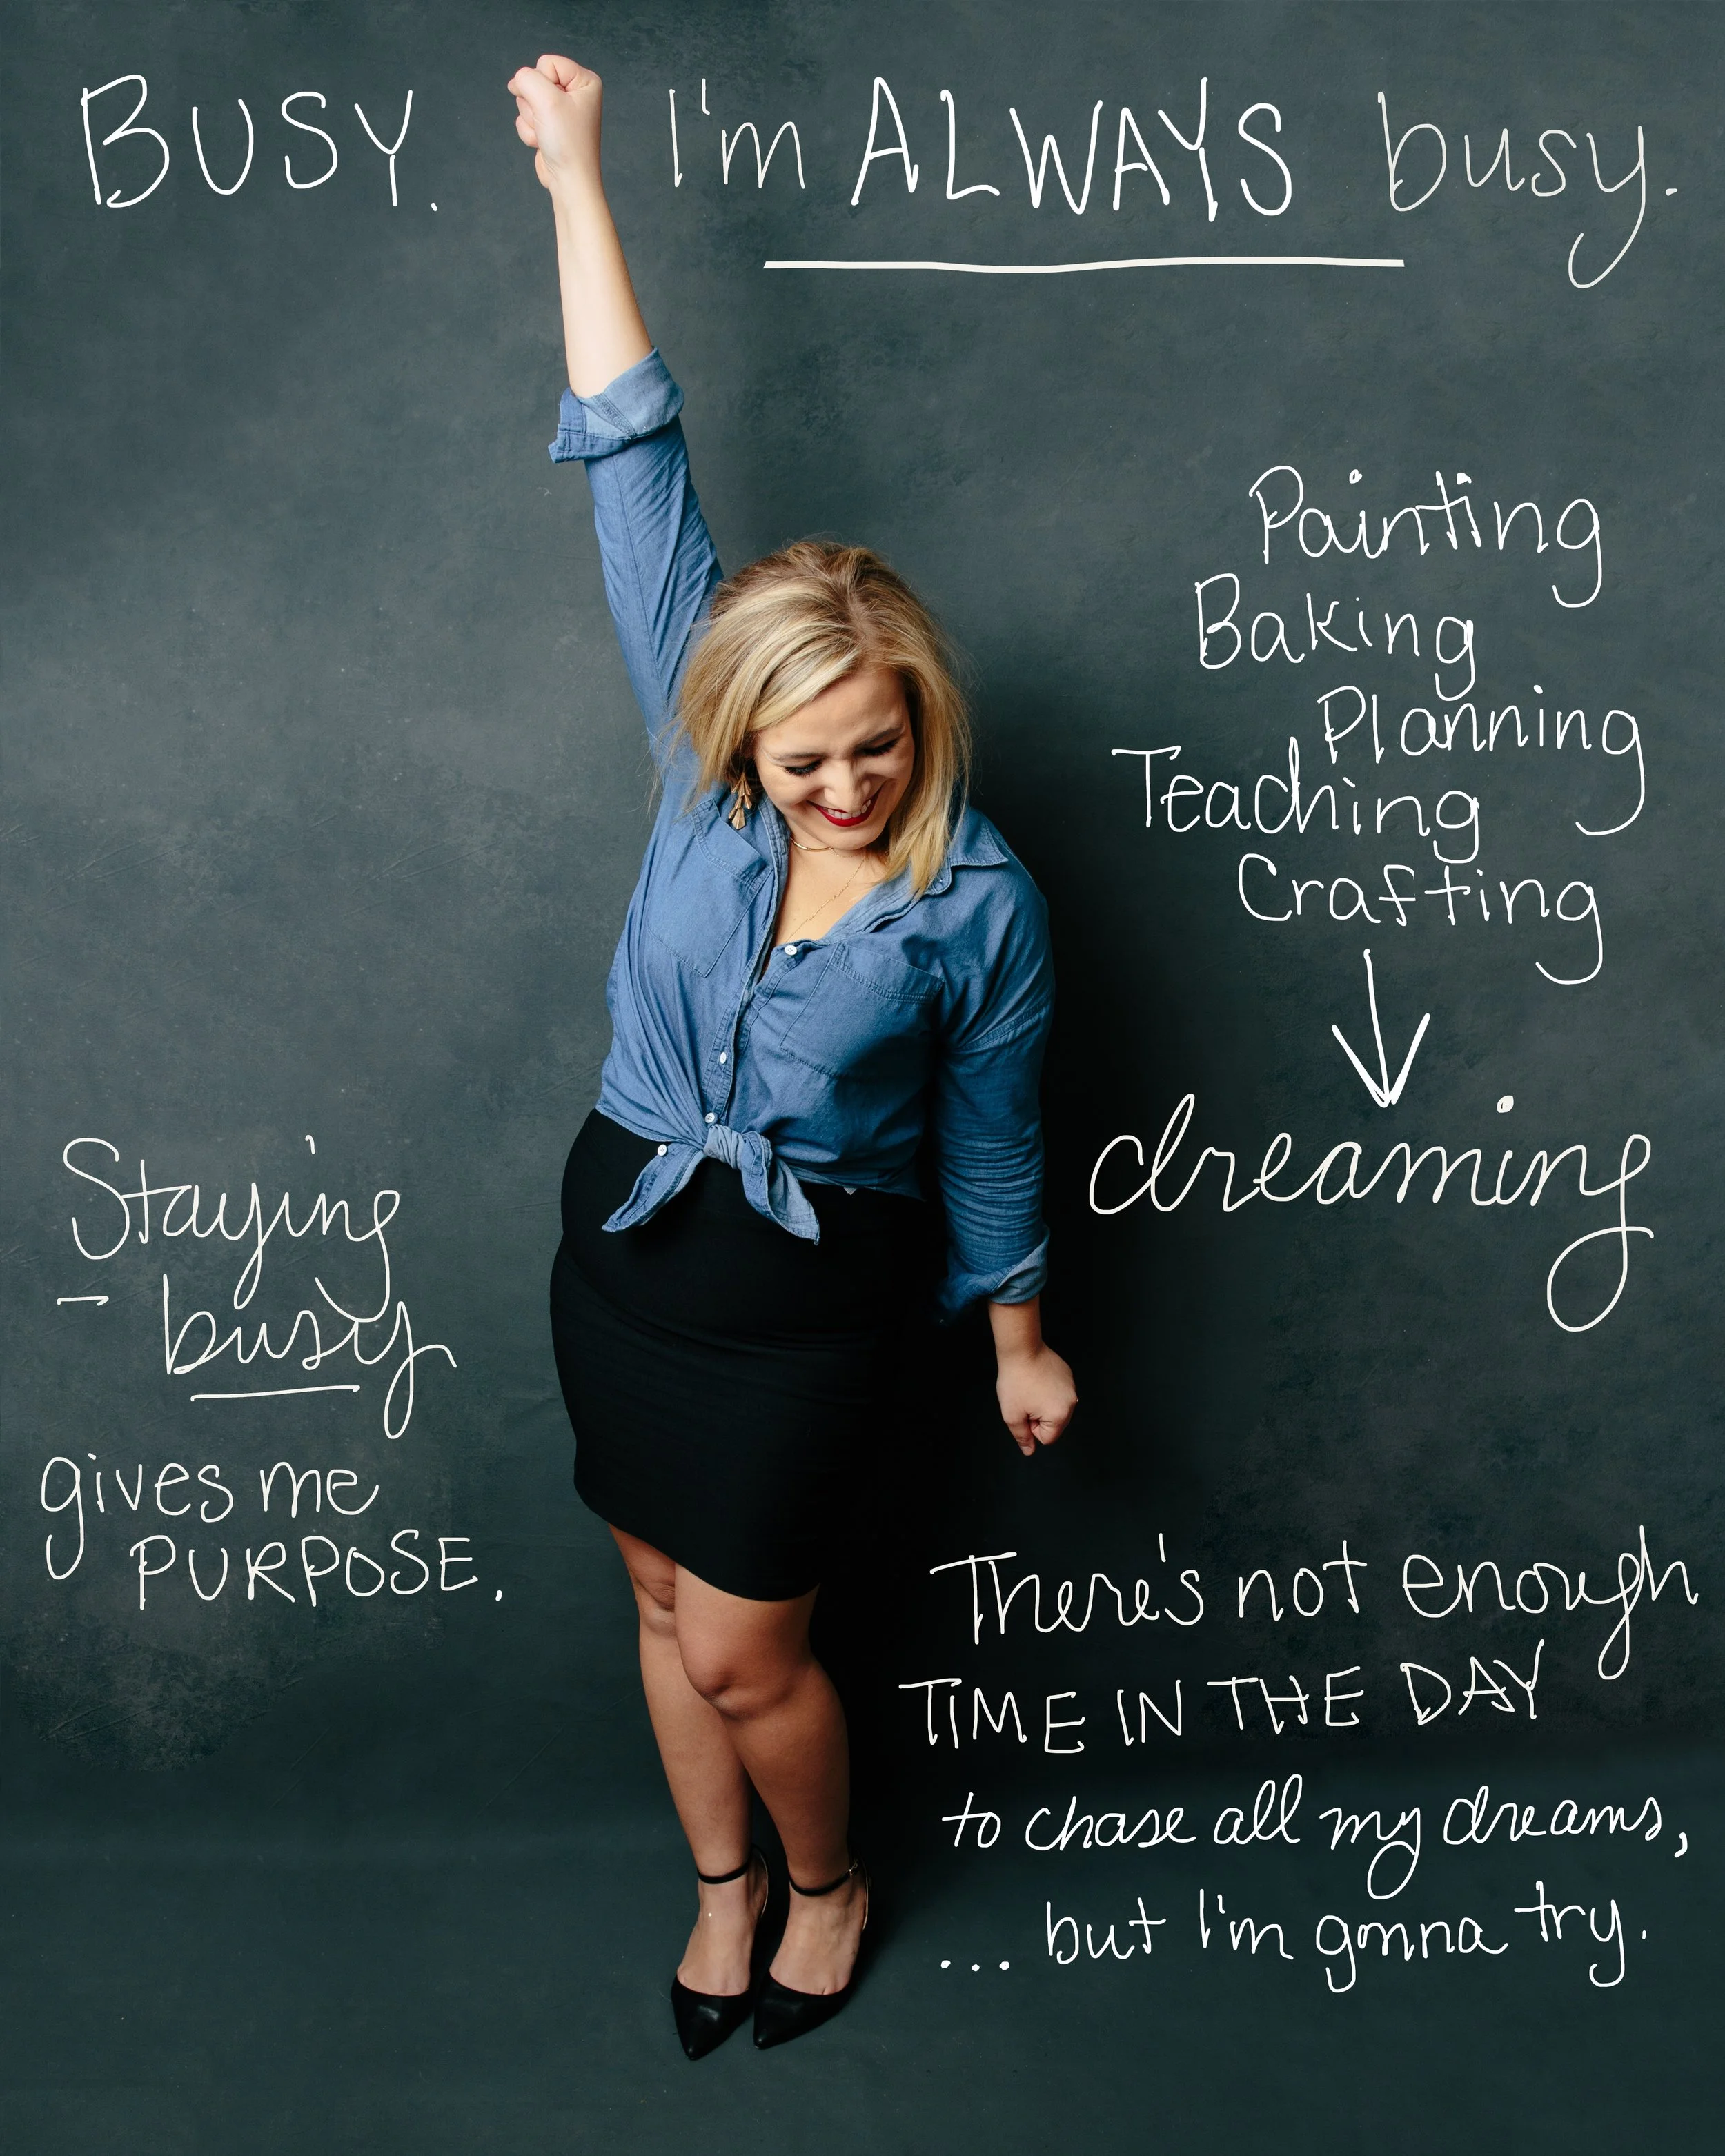 BUSY. I'm ALWAYS busy.
Painting
Baking
Planning
Teaching
Crafting
dreaming
Staying
busy
gives me
PURPOSE.
There's not enough
TIME IN THE DAY
to chase all my dreams,
... but I'm gonna try.